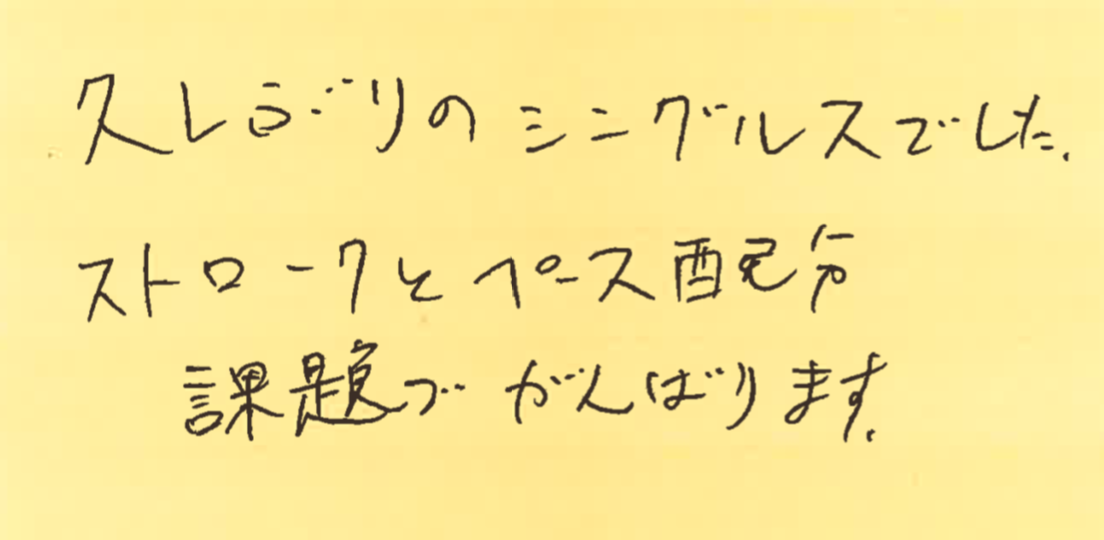 久しぶりのシングルスでした.
ストロークとペース配分
課題でがんばります.